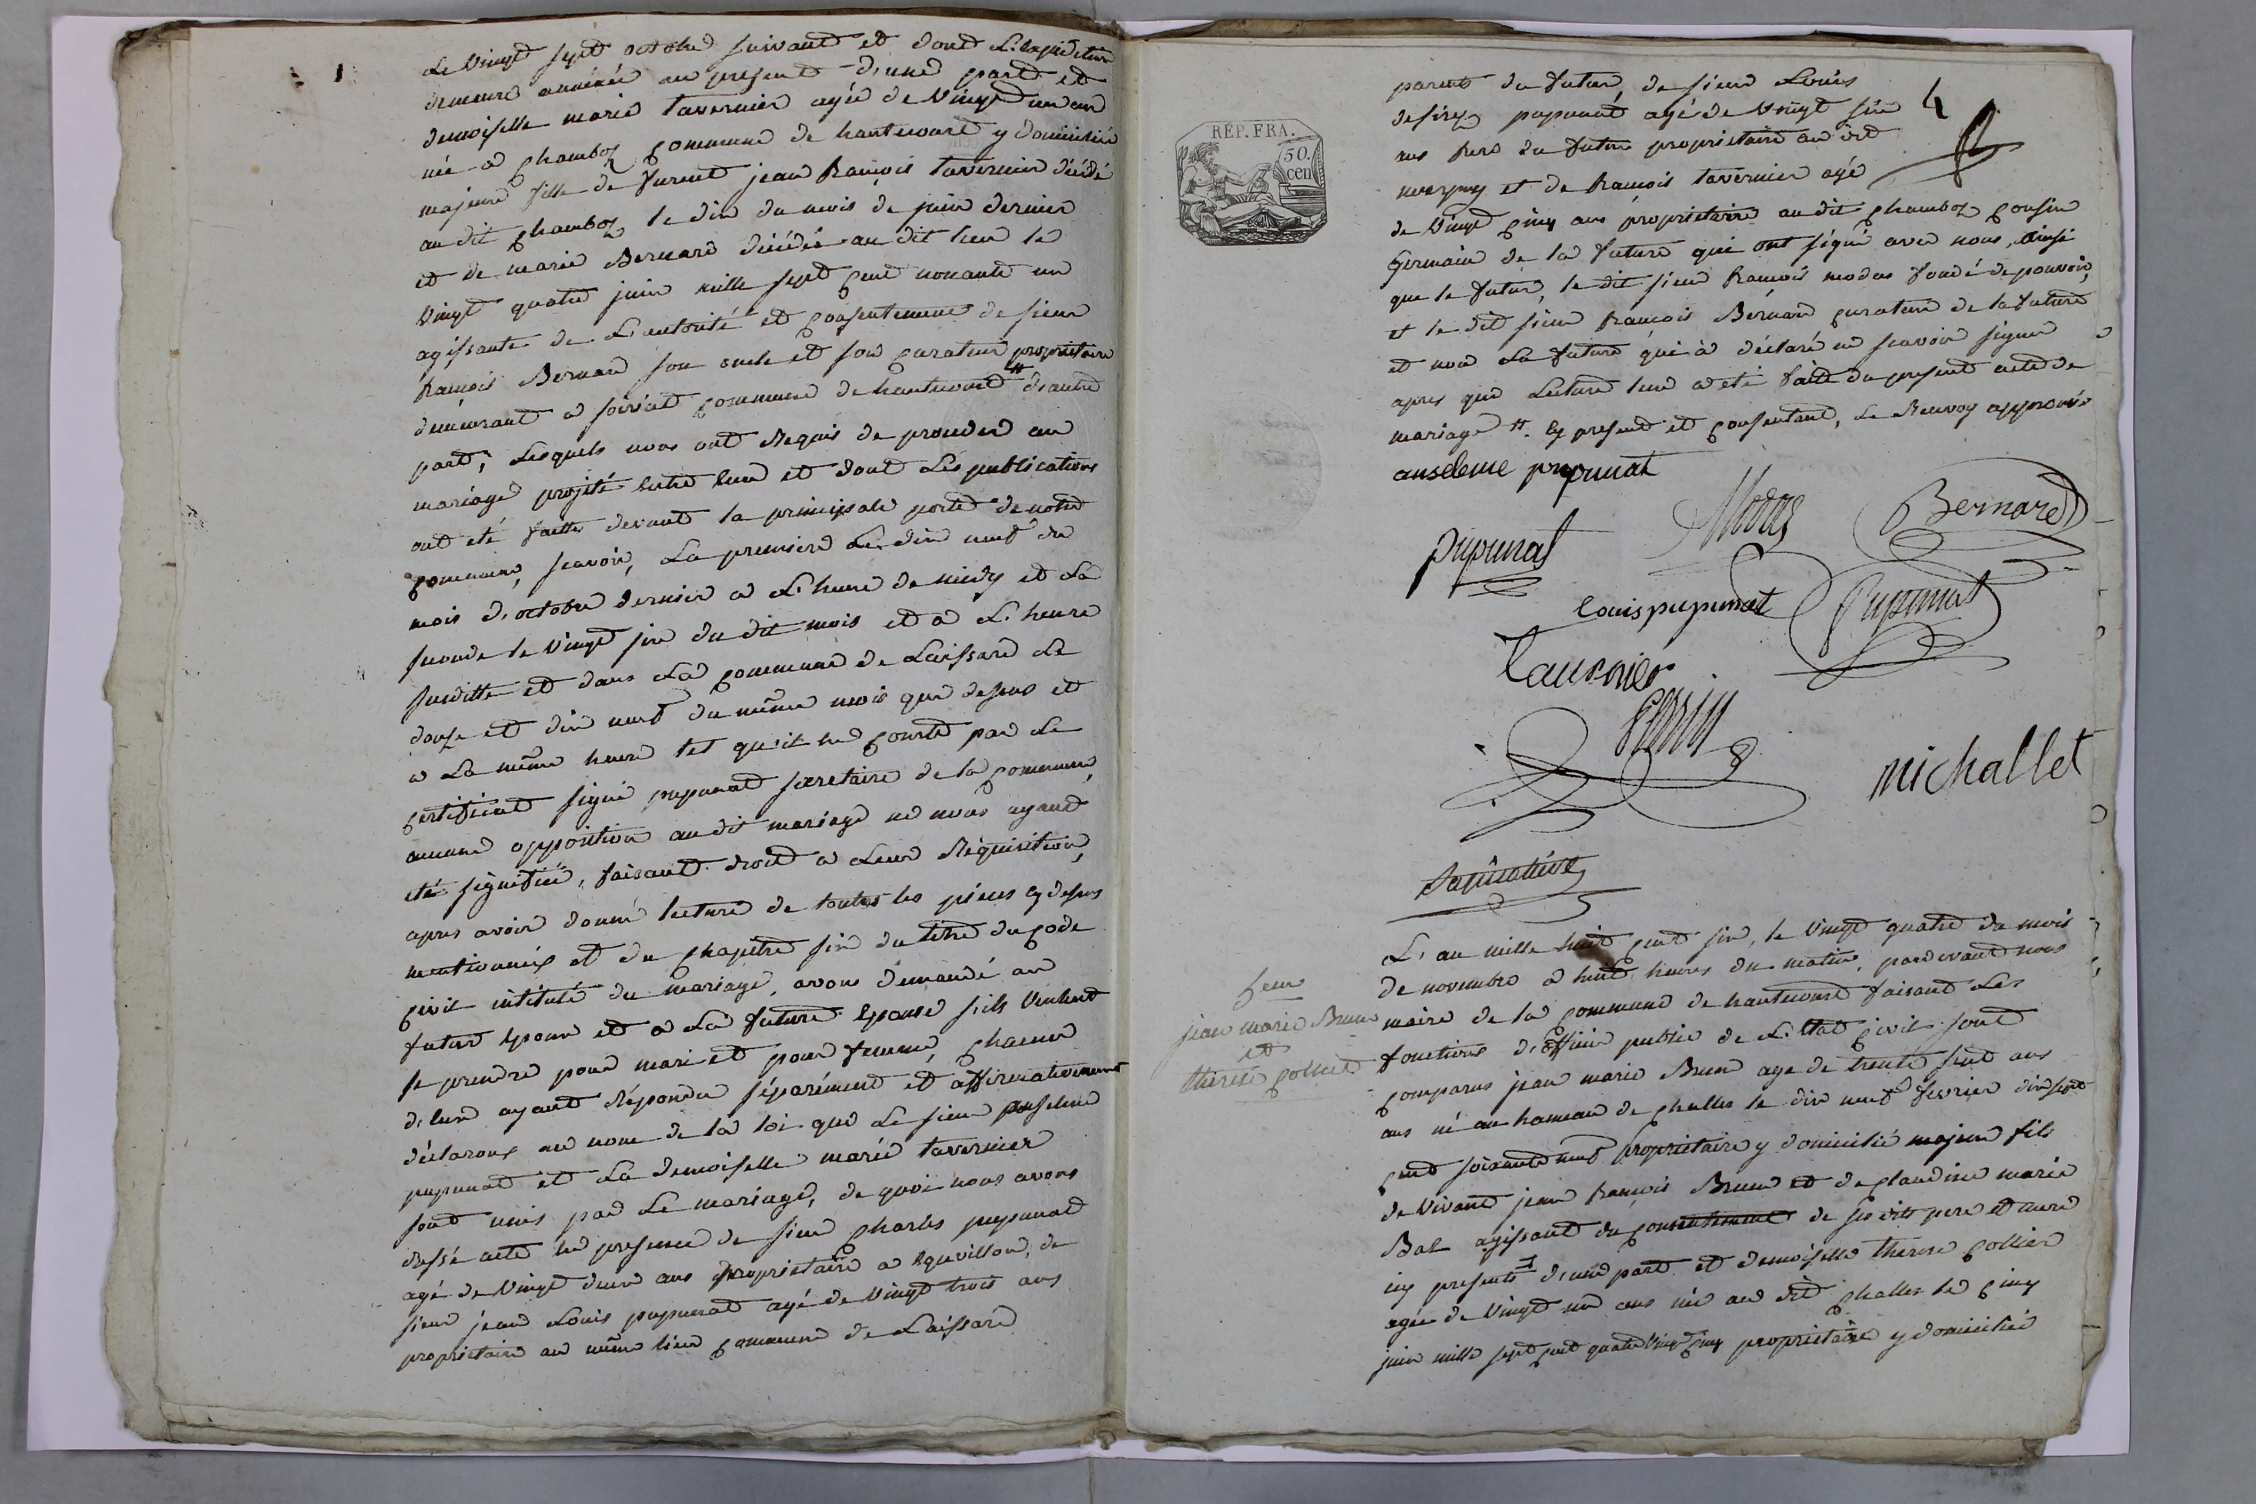 Le vingt sept octobre suivant et dont L'expedition
demeure annéxée au present d'une part et
demoiselle marie tavernier agée de vingt un an
née a chamboz commune de hautecourt y domiciliée
majeure fille de furent jean françois tavernier décédé
au dit chamboz le dix du mois de juin dernier
et de marie Bernard décédée au dit lieu le
vingt quatre juin mille sept cent nonante un
agissante de L'autorité et consentement de sieur
françois Bernard son oncle et son curateur propriétaire
demeurant a soiriat commune de hautecourt # d'autre
part, Lesquels nous ont requis de proceder au
mariage projité entre eux et dont Les publications
ont eté faittes devant la principale porte de notre
commune, scavoir, La premiere Le dix neuf du
mois d'octobre dernier a L'heure de midy et La
seconde le vingt six du dit mois et a L'heure
susditte et dans La commune de Leissard Le
douze et dix neuf du même mois que dessus et
a La même heure tel qu'il en conste par Le
certificat signé pupunat secretaire de la commune,
aucune opposition au dit mariage ne nous ayant
eté signifiée, faisant droit a Leur Requisition,
apres avoir donné lecture de toutes les pieces cy dessus
mentionnées et du chapitre six du titre du code
civil intitulé du mariage, avons demandé au
futur epoux et a La future epouse s'ils veulent
se prendre pour mari et pour femme, chacun
d'eux ayant répondu séparément et affirmativement
déclarons au nom de la loi que Le sieur anselme
pupunat et La demoiselle marie tavernier
sont unis par Le mariage, de quoi nous avons
dressé acte en presence de sieur charles pupunat
agé de vingt deux ans propriétaire a equevillon, de
sieur jean Louis pupunat agé de vingt trois ans
propriétaire au même lieu commune de Laissard
4
parents du futur, de sieur Louis
desirez pupunat agé de vingt six
ans frere du futur propriétaire au dit
et de françois tavernier agé
de vingt cinq ans propriétaire au dit chamboz cousin
Germain de la future qui ont signé avec nous, ainsi
que le futur, le dit sieur françois modas fondé de pouvoir,
et le dit sieur françois Bernard curateur de la future
et non La future qui a déclaré ne scavoir signer
apres que Lecture leur a eté faite du present acte de
mariage #. cy present et consentant, Le Renvoy approuvé
anselme pupunat
Modas
Bernard
pupunat
Louis pupunat
Pupunat
Tavernier
Perrin
michallet
RÉP. FRA.
50.
cen
L'an mille huit cent six, le vingt quatre du mois
de novembre a huit heures du matin, pardevant nous
maire de la commune de hautecourt faisant Les
fonctions d'officier public de L'Etat civil sont
comparus jean marie Brun age de trente sept ans
ans né au hameau de challes le dix neuf fevrier dix sept
cent soixante neuf propriétaire y domicilié majeur fils
de vivant jean françois Brun et de claudine marie
Bal agissant du consentement de ses dits pere et mere
icy presents d'une part et demoiselle therese collier
agée de vingt un ans née au dit challes le cinq
juin mille sept cent quatre vingt cinq propriétaire y domiciliée
jean marie Brun
et
therese collier